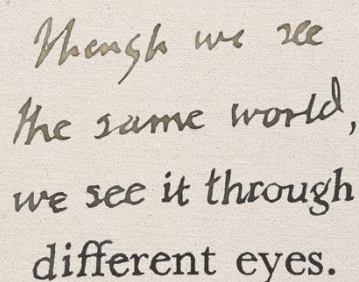 Though we see
the same world,
we see it through
different eyes.